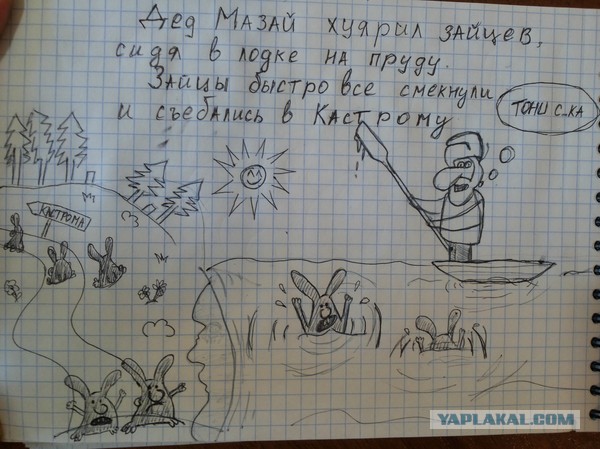 Дед Мазай хуярил зайцев,
сидя в лодке на пруду.
Зайцы быстро все смекнули
и съебались в Кастрому
ТОНИ С..КА
КАСТРОМА
YAPLAKAL.COM